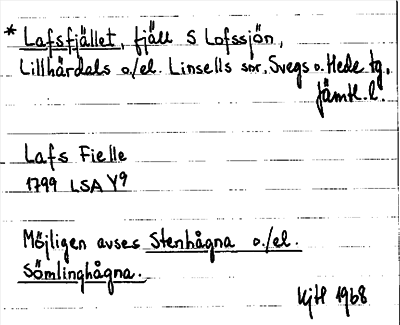 * Lafsfjället, fjäll S Lofssjön,
Lillhärdals o./el. Linsells snr, Svegs o. Hede tg,
Jämtl. l.
Lafs Fielle
1799 LSA Y9
Möjligen avses Stenhågna o./el.
Sömlinghågna.
1968